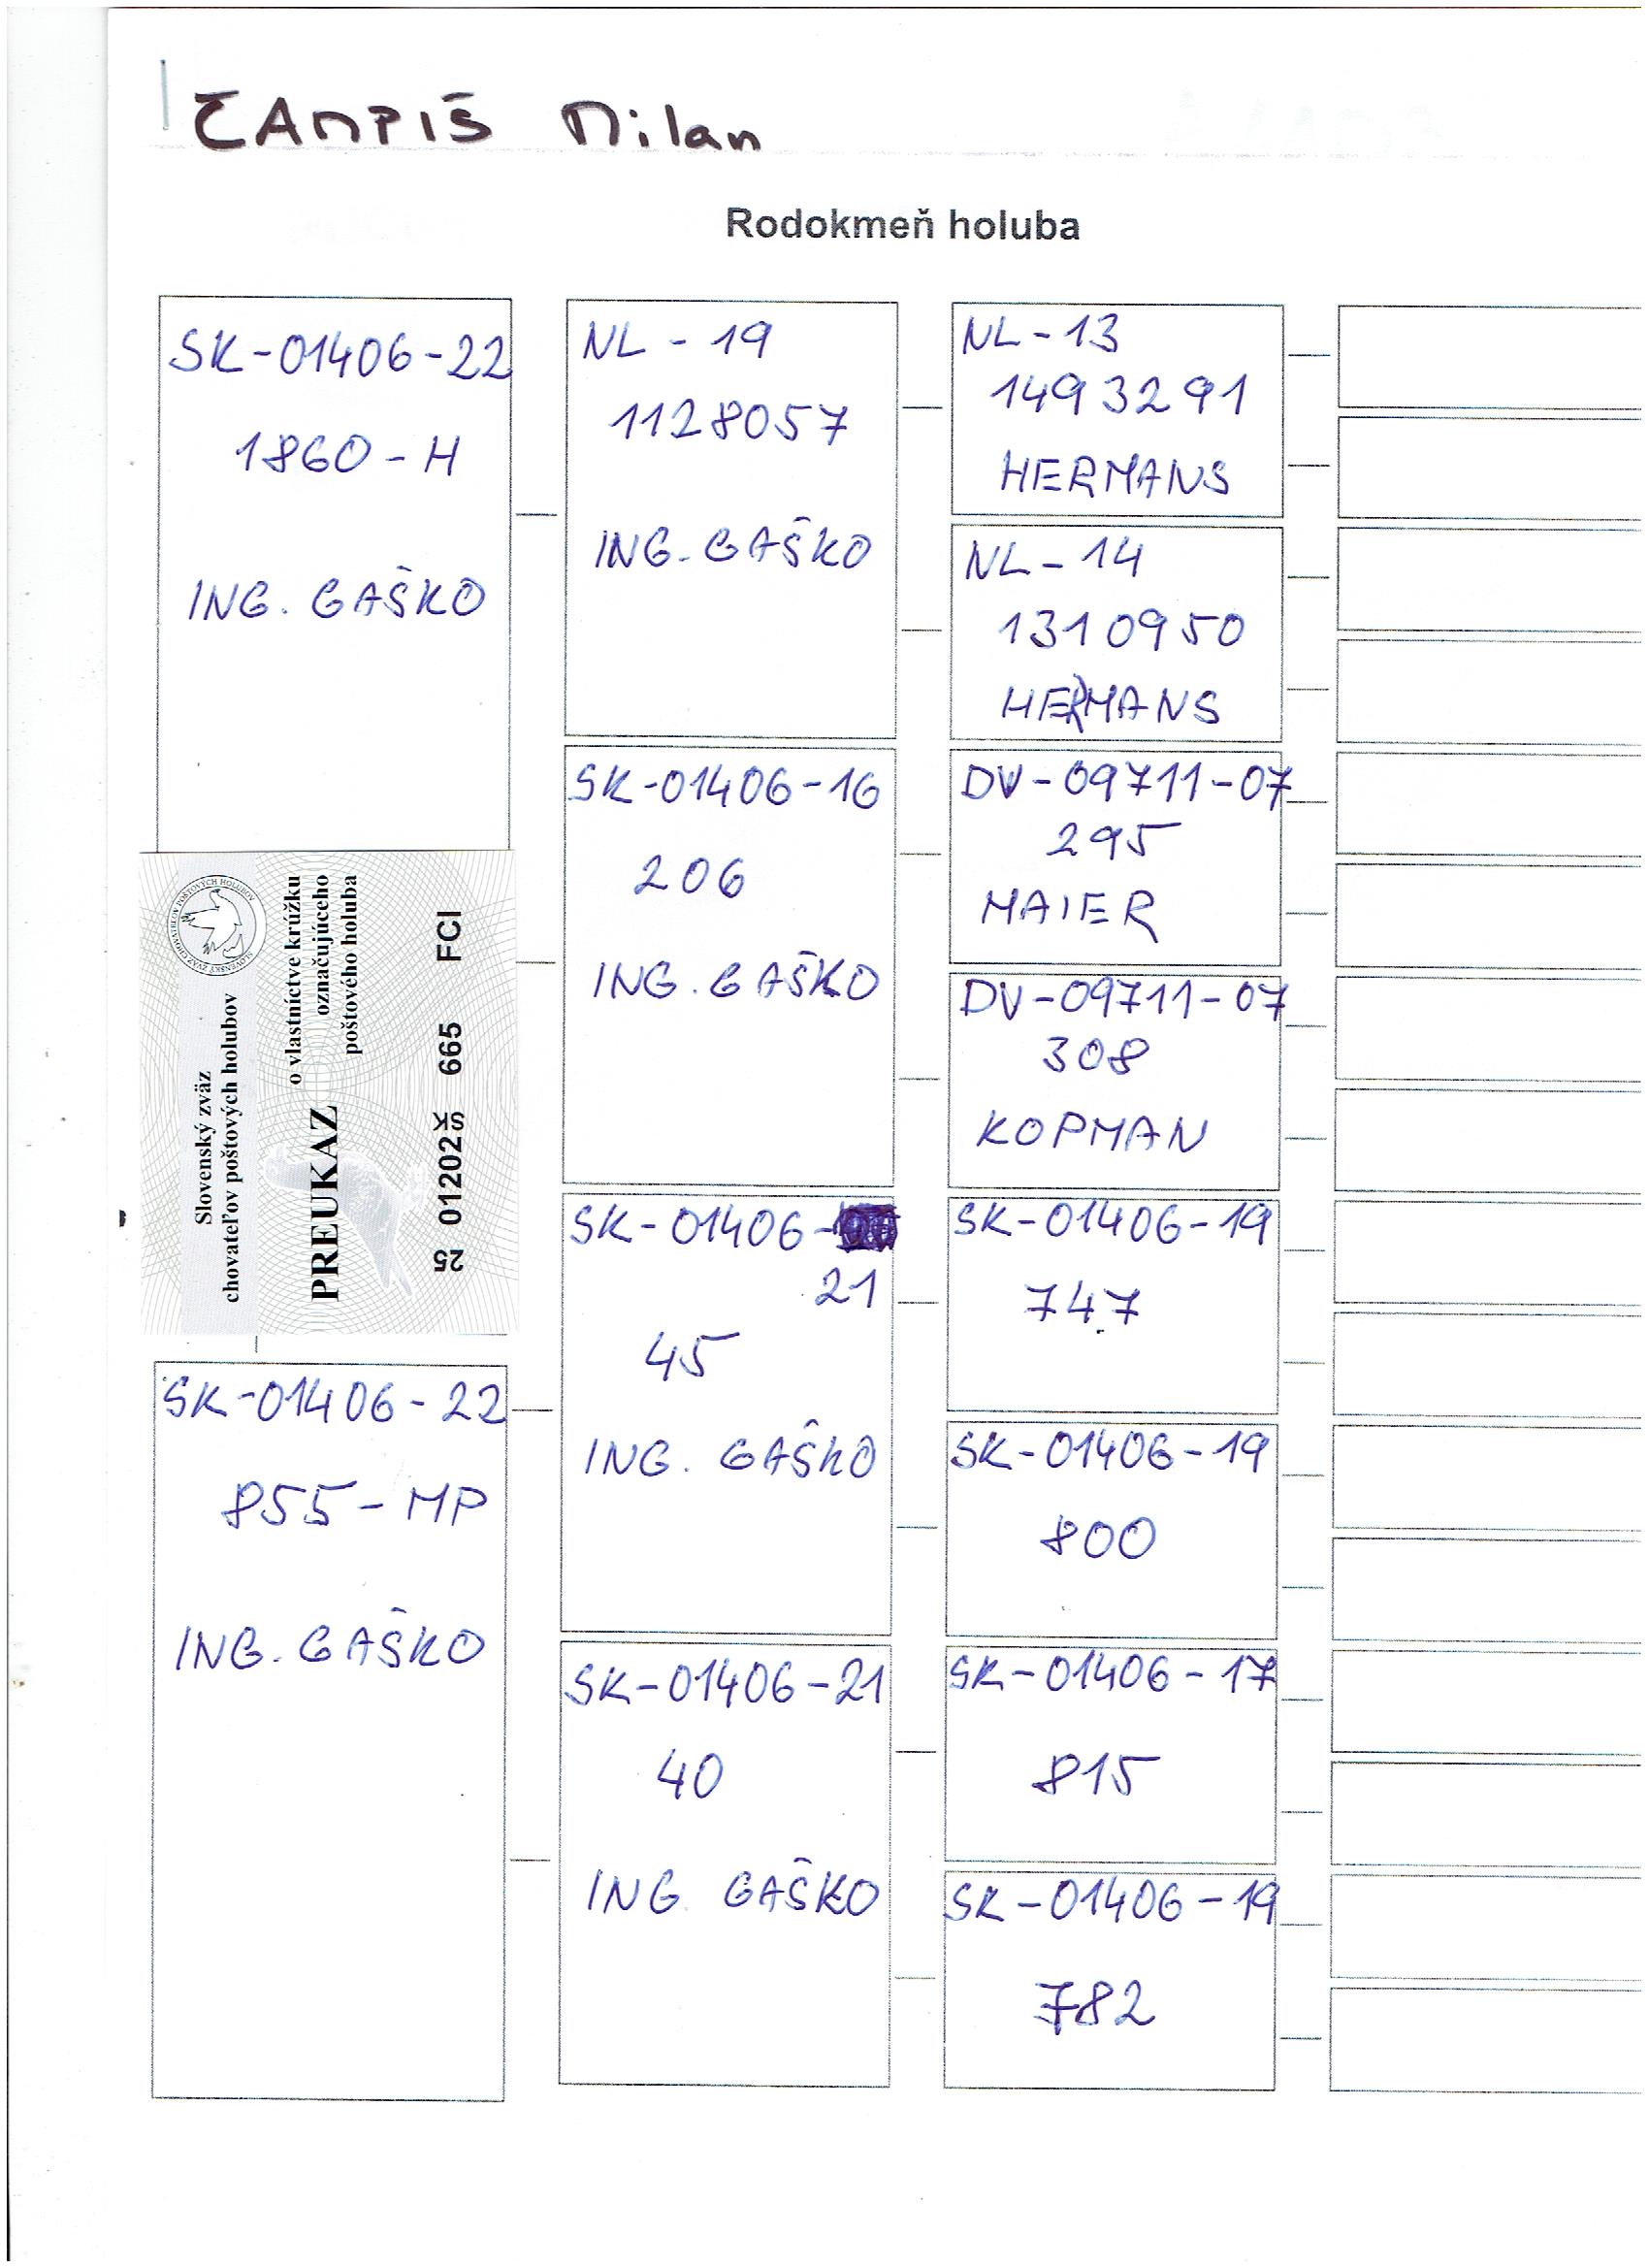 ČAMPIŠ Milan
Rodokmeň holuba
SK-01406-22
1860-H
ING. GAŠKO
Slovenský zväz
chovateľov poštových holubov
SLOVENSKÝ ZVÄZ CHOVATEĽOV POŠTOVÝCH HOLUBOV
PREUKAZ
o vlastníctve krúžku
označujúceho
poštového holuba
25 01202 SK 665 FCI
SK-01406-22
855-MP
ING. GAŠKO
NL-19
1128057
ING. GAŠKO
SK-01406-16
206
ING. GAŠKO
SK-01406-
21
45
ING. GAŠKO
SK-01406-21
40
ING. GAŠKO
NL-13
1493291
HERMANS
NL-14
1310950
HERMANS
DV-09711-07
295
MAIER
DV-09711-07
308
KOPMAN
SK-01406-19
747
SK-01406-19
800
SK-01406-17
815
SK-01406-19
782